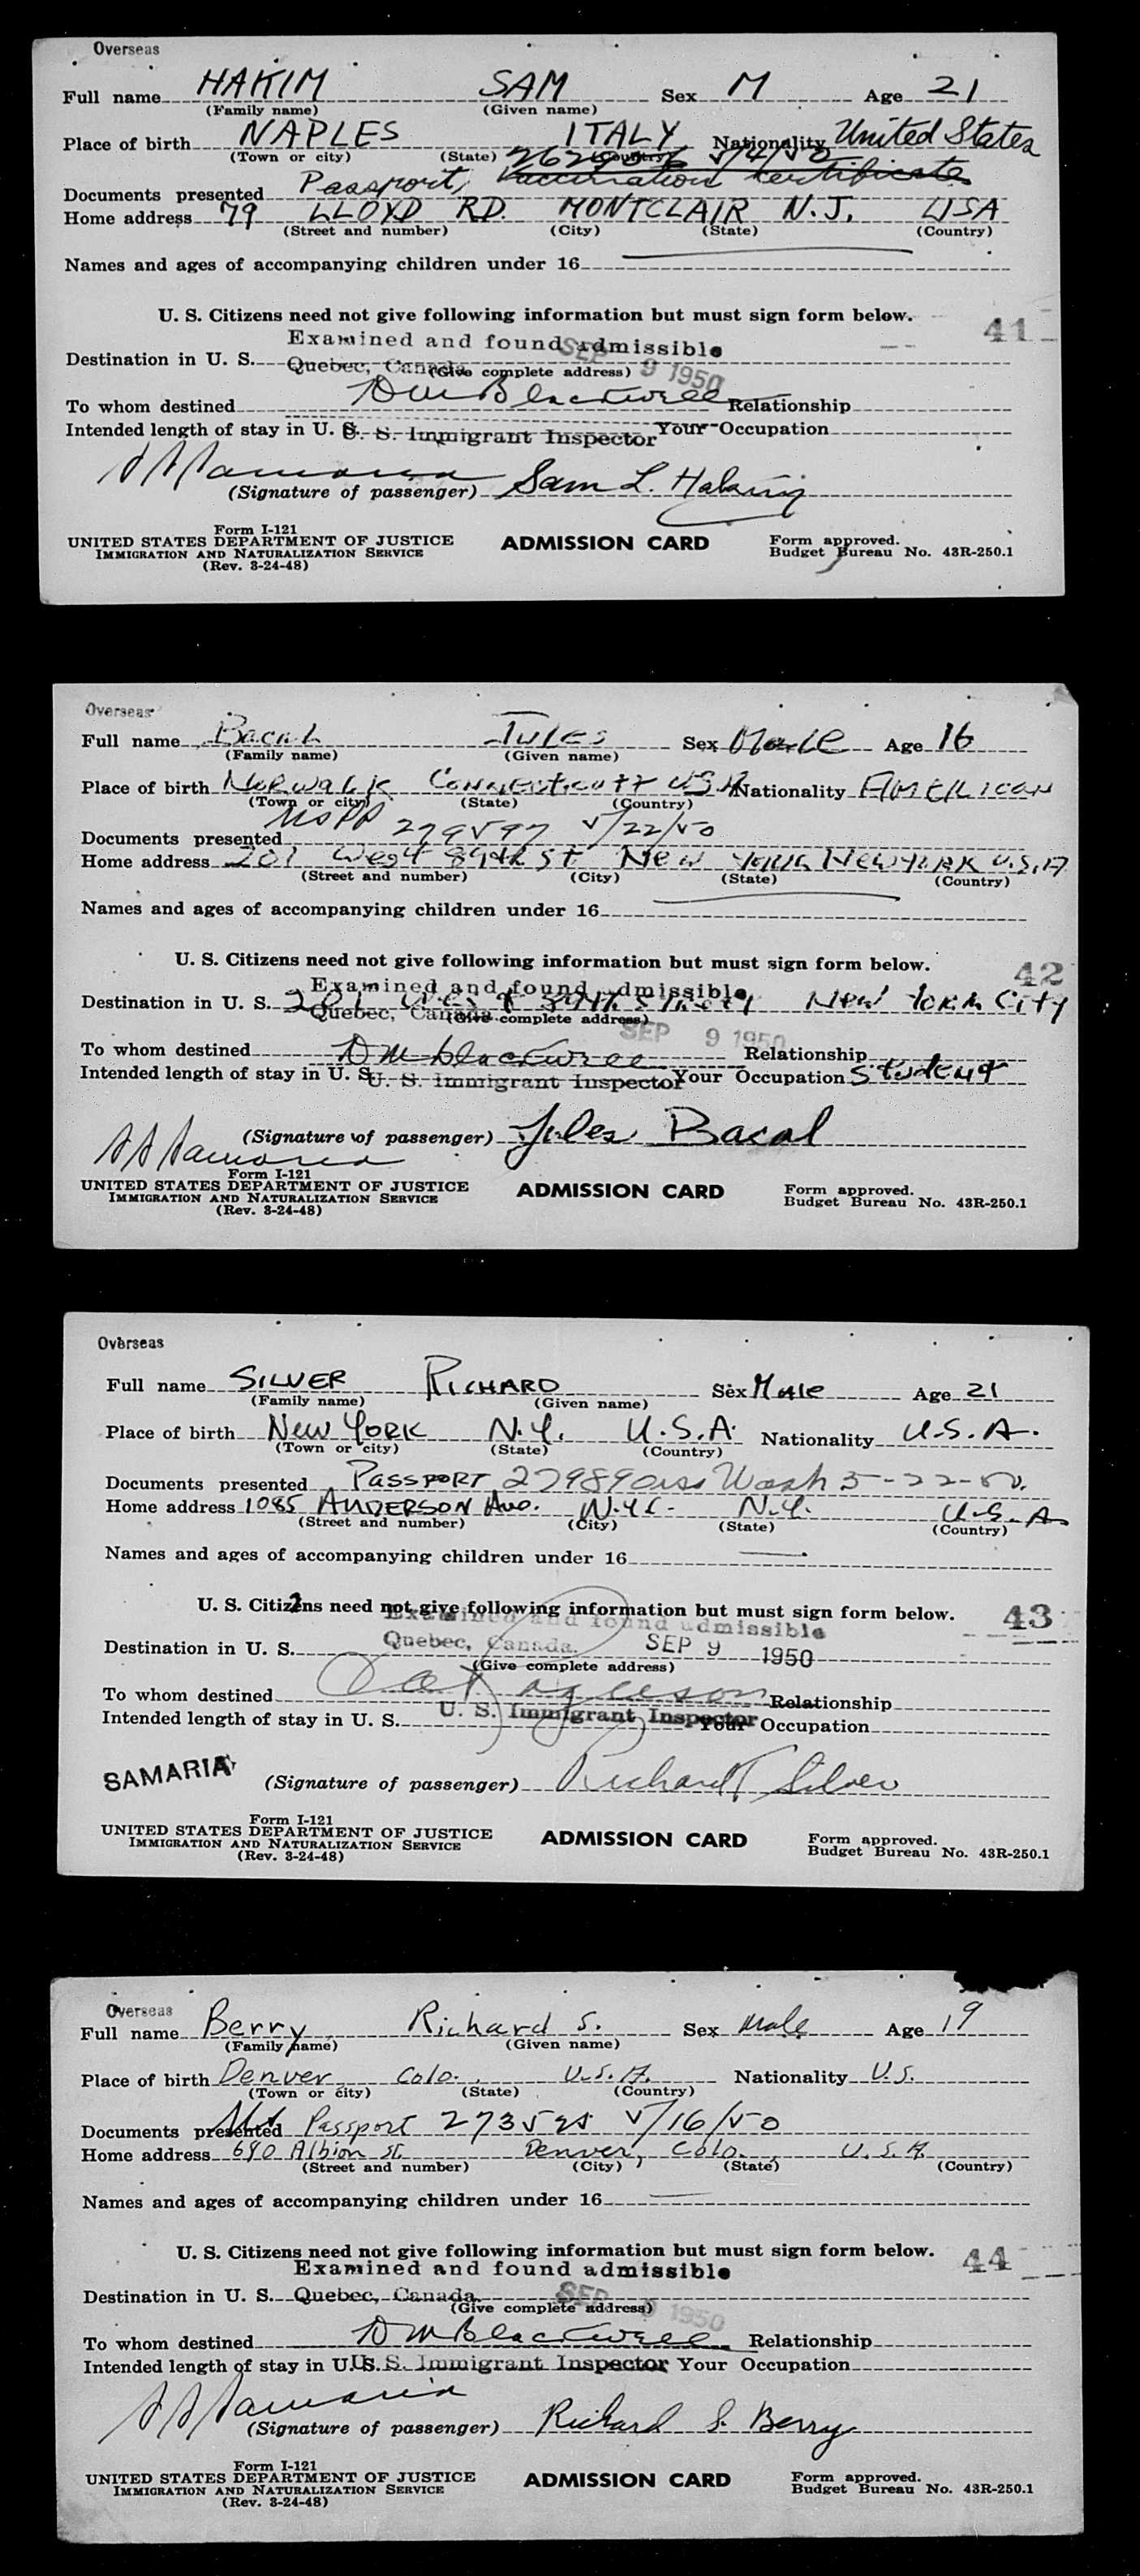 Overseas
Full name HAKIM SAM Sex M Age 21
(Family name) (Given name)
Place of birth NAPLES ITALY Nationality United States
(Town or city) (State) (Country)
Documents presented Passport, Vaccination certificate
Home address 79 LLOYD RD. MONTCLAIR N.J. USA
(Street and number) (City) (State) (Country)
Names and ages of accompanying children under 16
U. S. Citizens need not give following information but must sign form below. 41
Examined and found admissible
Destination in U. S. Quebec, Canada SEP 9 1950
(Give complete address)
To whom destined DM Blackwell Relationship
Intended length of stay in U. S. U. S. Immigrant Inspector Your Occupation
SS Samaria (Signature of passenger) Sam L. Hakim
Form I-121
UNITED STATES DEPARTMENT OF JUSTICE ADMISSION CARD Form approved.
IMMIGRATION AND NATURALIZATION SERVICE Budget Bureau No. 43R-250.1
(Rev. 3-24-48)
Overseas
Full name Bacal Jules Sex Male Age 16
(Family name) (Given name)
Place of birth Norwalk Connecticutt USA Nationality AMERICAN
(Town or city) (State) (Country)
Documents presented USPP 279597 5/22/50
Home address 201 West 89th St New York New York U.S.A
(Street and number) (City) (State) (Country)
Names and ages of accompanying children under 16
U. S. Citizens need not give following information but must sign form below. 42
Examined and found admissible
Destination in U. S. 201 West 89th Street New York City
Quebec, Canada (Give complete address) SEP 9 1950
To whom destined DM Blackwell Relationship
Intended length of stay in U. S. U. S. Immigrant Inspector Your Occupation Student
SS Samaria (Signature of passenger) Jules Bacal
Form I-121
UNITED STATES DEPARTMENT OF JUSTICE ADMISSION CARD Form approved.
IMMIGRATION AND NATURALIZATION SERVICE Budget Bureau No. 43R-250.1
(Rev. 3-24-48)
Overseas
Full name SILVER RICHARD Sex Male Age 21
(Family name) (Given name)
Place of birth New York N.Y. U.S.A. Nationality U.S.A.
(Town or city) (State) (Country)
Documents presented PASSPORT 279890 iss Wash 5-22-50.
Home address 1085 ANDERSON Ave. N.Y.C. N.Y. U.S.A
(Street and number) (City) (State) (Country)
Names and ages of accompanying children under 16
U. S. Citizens need not give following information but must sign form below. 43
Examined and found admissible
Destination in U. S. Quebec, Canada. SEP 9 1950
(Give complete address)
To whom destined Relationship
Intended length of stay in U. S. U. S. Immigrant Inspector Your Occupation
SAMARIA (Signature of passenger) Richard Silver
Form I-121
UNITED STATES DEPARTMENT OF JUSTICE ADMISSION CARD Form approved.
IMMIGRATION AND NATURALIZATION SERVICE Budget Bureau No. 43R-250.1
(Rev. 3-24-48)
Overseas
Full name Berry Richard S. Sex Male Age 19
(Family name) (Given name)
Place of birth Denver Colo. U.S.A. Nationality U.S.
(Town or city) (State) (Country)
Documents presented Passport 5/16/50
Home address 690 Albion St. Denver, Colo. U.S.A.
(Street and number) (City) (State) (Country)
Names and ages of accompanying children under 16
U. S. Citizens need not give following information but must sign form below. 44
Examined and found admissible
Destination in U. S. Quebec, Canada SEP 9 1950
(Give complete address)
To whom destined DM Blackwell Relationship
Intended length of stay in U. S. U. S. Immigrant Inspector Your Occupation
SS Samaria (Signature of passenger) Richard S. Berry
Form I-121
UNITED STATES DEPARTMENT OF JUSTICE ADMISSION CARD Form approved.
IMMIGRATION AND NATURALIZATION SERVICE Budget Bureau No. 43R-250.1
(Rev. 3-24-48)